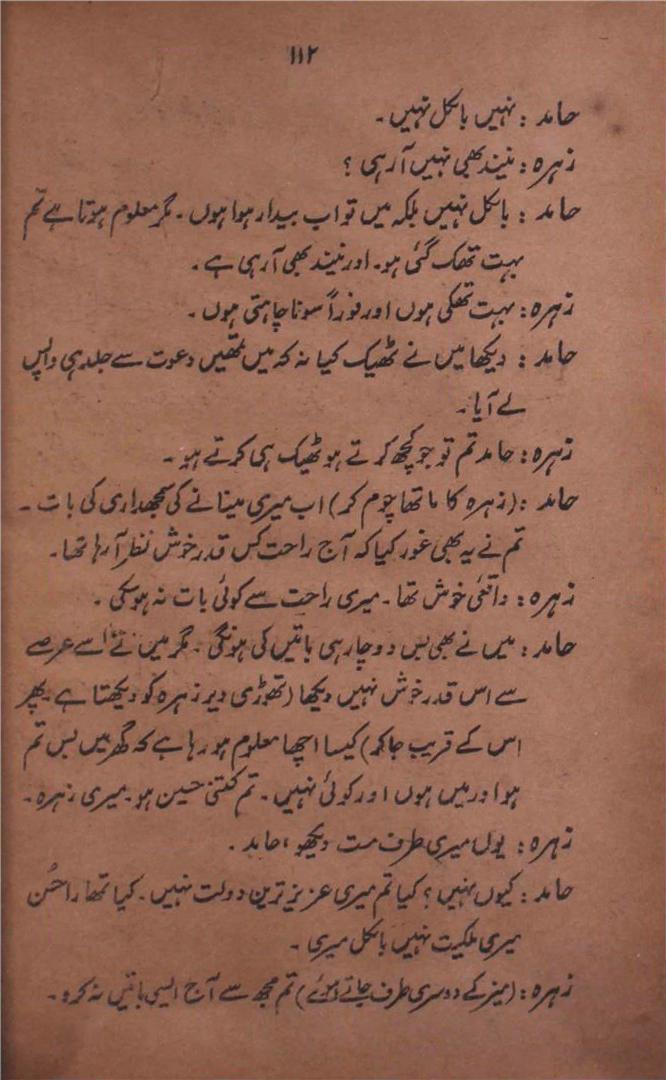 ۱۱۲
حامد : نہیں بالکل نہیں ۔
زہرہ : نیند بھی نہیں آرہی ؟
حامد : بالکل نہیں بلکہ میں تو اب بیدار ہوا ہوں ۔ مگر معلوم ہوتا ہے تم
بہت تھک گئی ہو۔ اور نیند بھی آرہی ہے ۔
زہرہ : بہت تھکی ہوں اور فوراً سونا چاہتی ہوں ۔
حامد : دیکھا میں نے ٹھیک کیا نہ کہ میں تمھیں دعوت سے جلد ہی واپس
لے آیا ۔
زہرہ : حامد تم تو جو کچھ کرتے ہو ٹھیک ہی کرتے ہو ۔
حامد : (زہرہ کا ماتھا چوم کر) اب میری مینا نے کی سمجھداری کی بات ۔
تم نے یہ بھی غور کیا کہ آج راحت کس قدر خوش نظر آرہا تھا۔
زہرہ : واقعی خوش تھا ۔ میری راحت سے کوئی بات نہ ہوسکی ۔
حامد : میں نے بھی بس دو چار ہی باتیں کی ہونگی ۔ مگر میں نے اسے عرصے
سے اس قدر خوش نہیں دیکھا (تھوڑی دیر زہرہ کو دیکھتا ہے پھر
اس کے قریب جاکر) کیسا اچھا معلوم ہو رہا ہے کہ گھر میں بس تم
ہو اور میں ہوں اور کوئی نہیں ۔ تم کتنی حسین ہو ۔ میری زہرہ ۔
زہرہ : یوں میری طرف مت دیکھو ، حامد ۔
حامد : کیوں نہیں ؟ کیا تم میری عزیز ترین دولت نہیں ۔ کیا تمھارا حُسن
میری ملکیت نہیں بالکل میری ۔
زہرہ : (میز کے دوسری طرف جاتے ہوئے) تم مجھ سے آج ایسی باتیں نہ کرو ۔